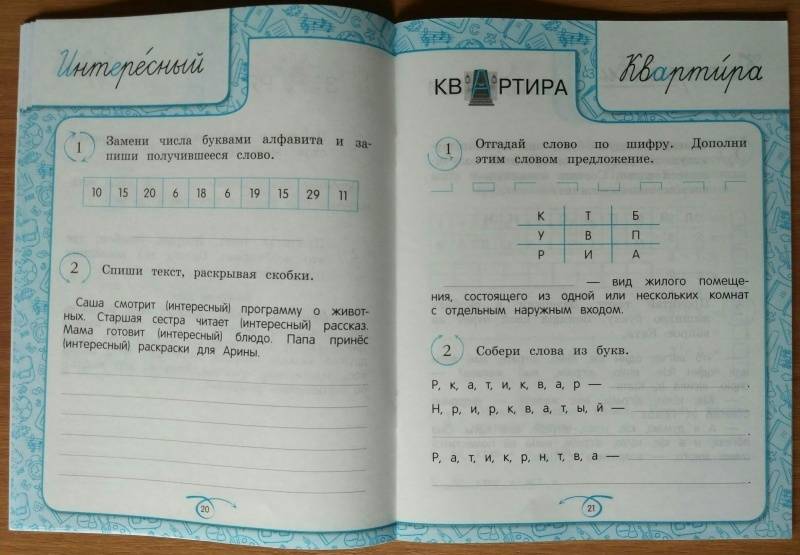 Интере́сный
1 Замени числа буквами алфавита и за-
пиши получившееся слово.
10 15 20 6 18 6 19 15 29 11
2 Спиши текст, раскрывая скобки.
Саша смотрит (интересный) программу о живот-
ных. Старшая сестра читает (интересный) рассказ.
Мама готовит (интересный) блюдо. Папа принёс
(интересный) раскраски для Арины.
20
КВАРТИРА
Кварти́ра
1 Отгадай слово по шифру. Дополни
этим словом предложение.
К Т Б
У В П
Р И А
— вид жилого помеще-
ния, состоящего из одной или нескольких комнат
с отдельным наружным входом.
2 Собери слова из букв.
Р, к, а, т, и, к, в, а, р —
Н, р, и, р, к, в, а, т, ы, й —
Р, а, т, и, к, р, н, т, в, а —
21